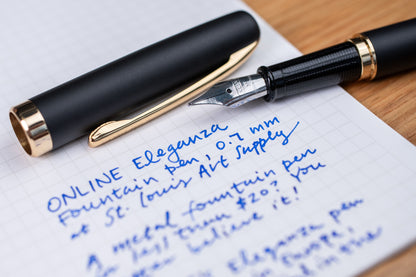 ONLINE Eleganza
Fountain pen, 0.7 mm
at St. Louis Art Supply
A metal fountain pen
for less than $20? You
better believe it!
Eleganza pen
Europe,
in the